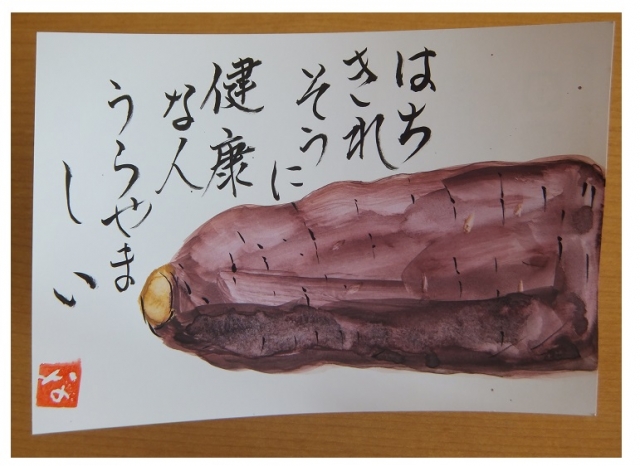 はち
きれ
そうに
健康
な人
うらやま
しい
な